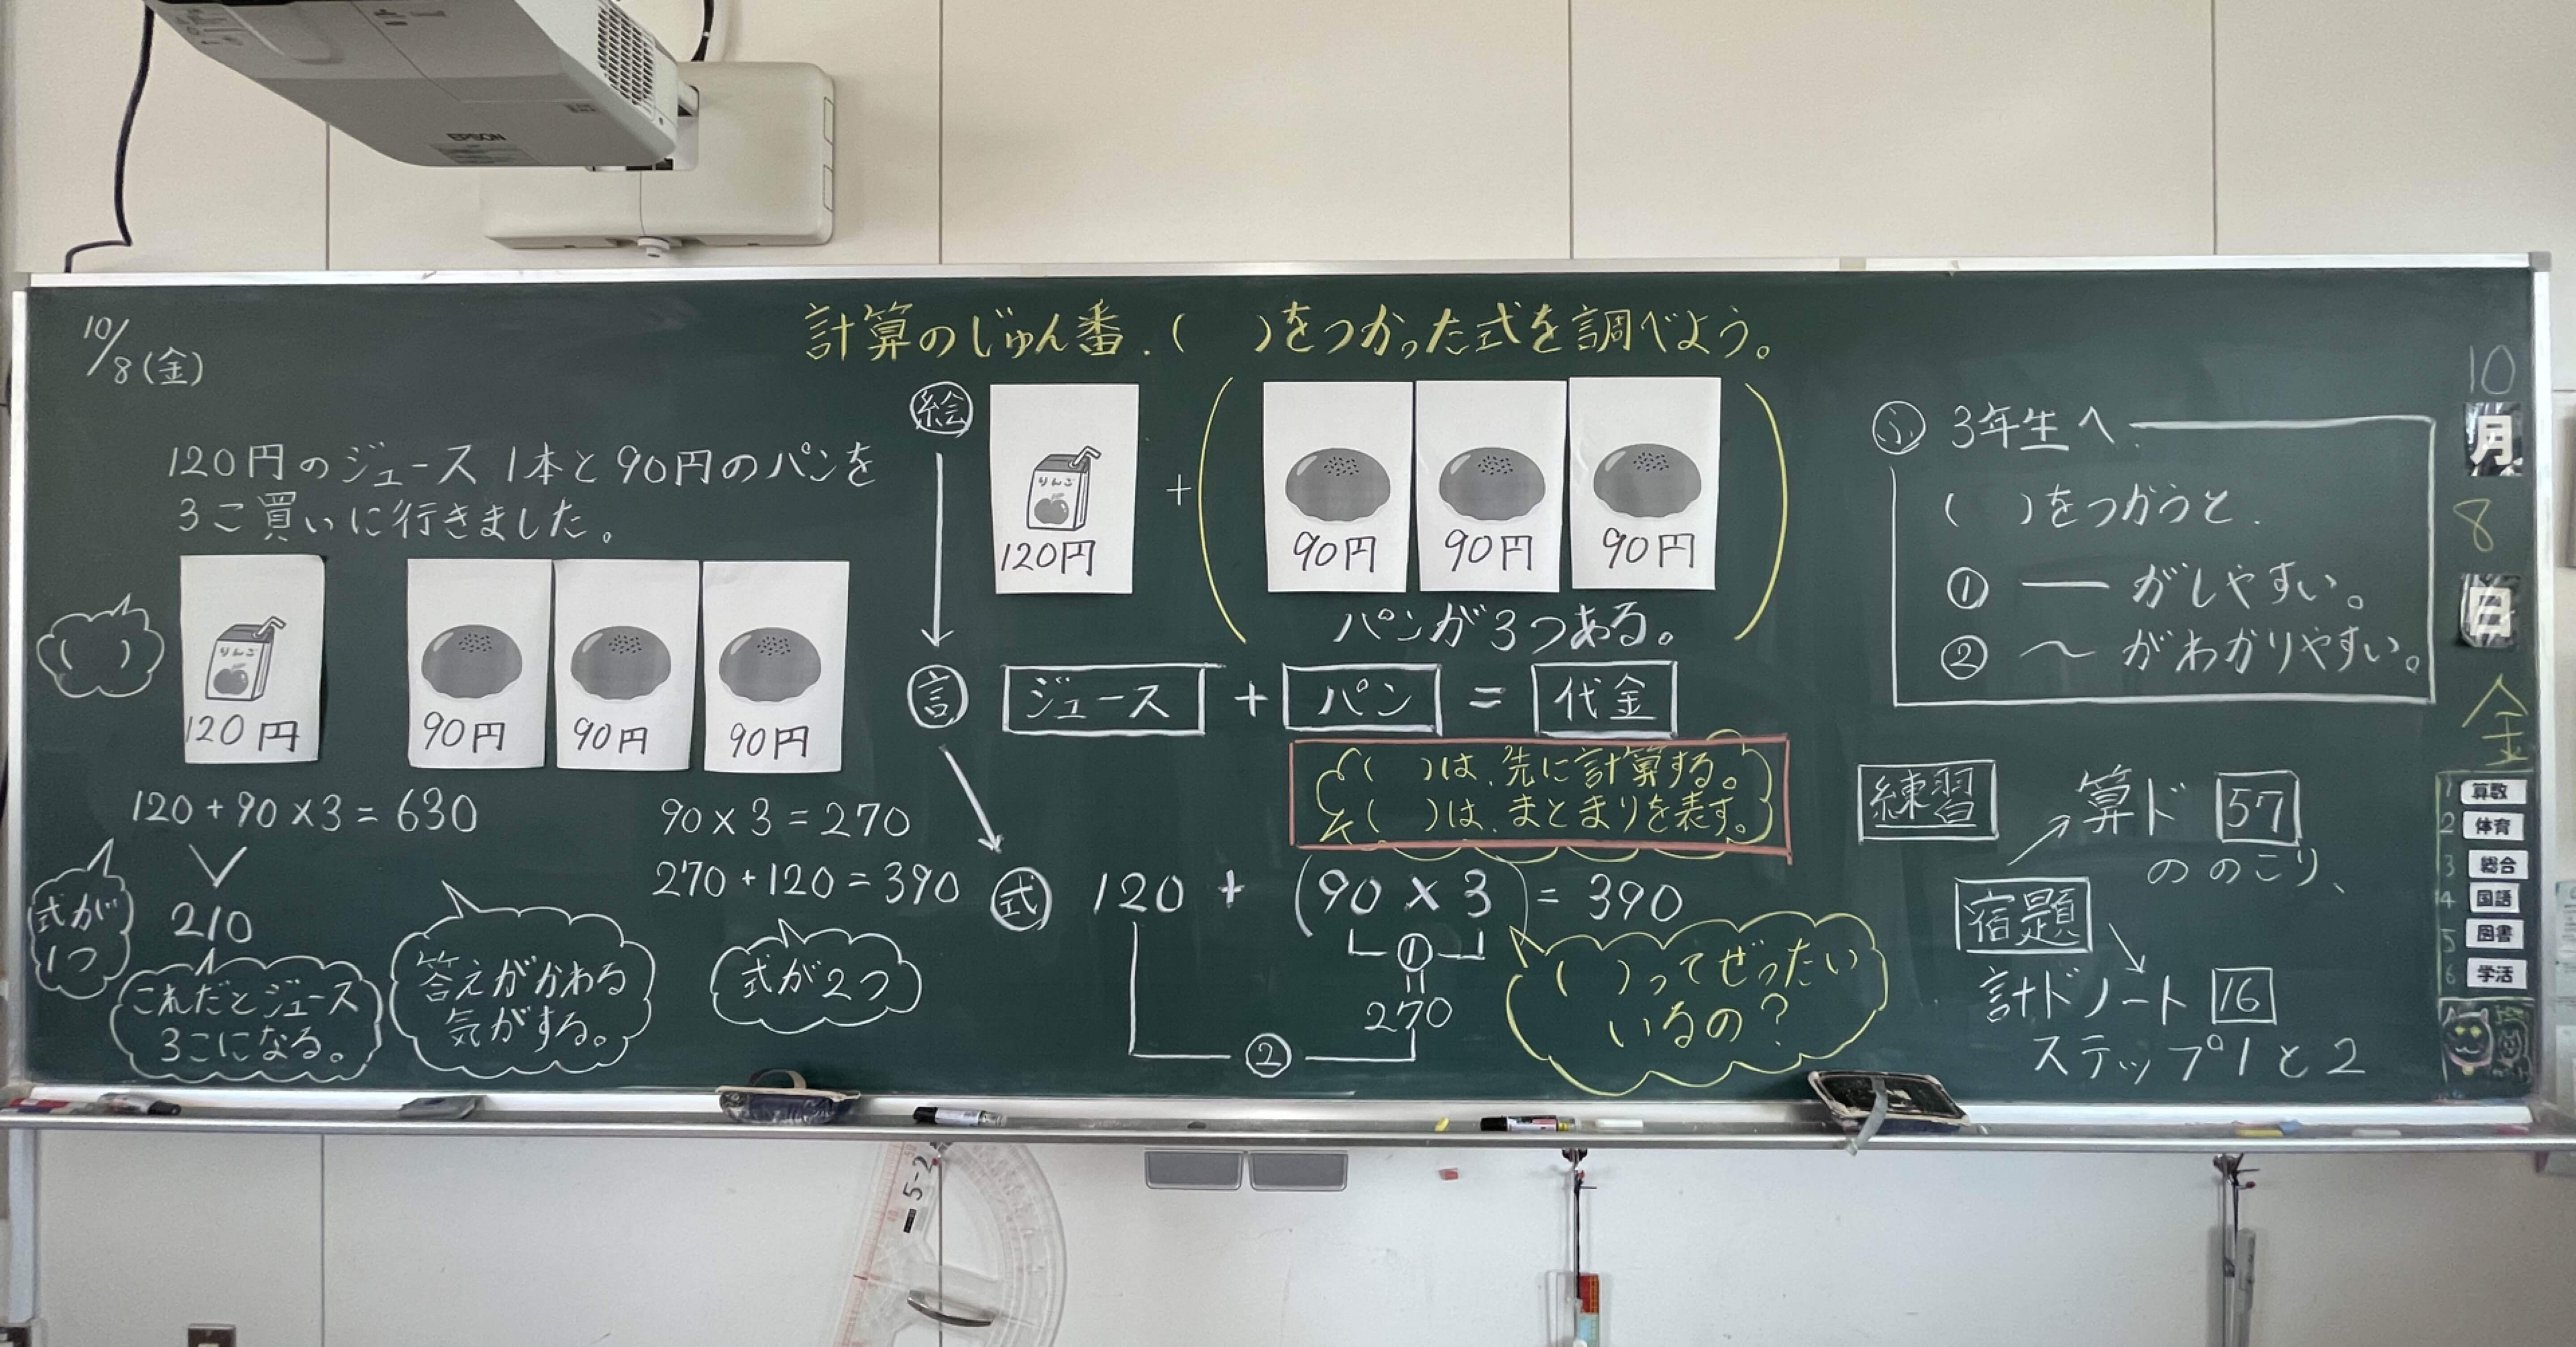 EPSON
10/8(金)
計算のじゅん番.( )をつかった式を調べよう。
120円のジュース 1本と90円のパンを
3こ買いに行きました。
( )
りんご
120円
90円
90円
90円
120+90×3=630
210
式が
1つ
これだとジュース
3こになる。
答えがかわる
気がする。
90×3=270
270+120=390
式が2つ
絵
りんご
120円
+
90円
90円
90円
パンが3つある。
言
ジュース + パン = 代金
( )は、先に計算する。
( )は、まとまりを表す。
式
120 + (90 × 3) = 390
①
270
②
( )ってぜったい
いるの?
ふ 3年生へ
( )をつかうと、
① ― がしやすい。
② 〜 がわかりやすい。
練習
算ド 57
ののこり、
宿題
計ドノート 16
ステップ1と2
10
月
8
日
金
1 算数
2 体育
3 総合
4 国語
5 図書
6 学活
5-2